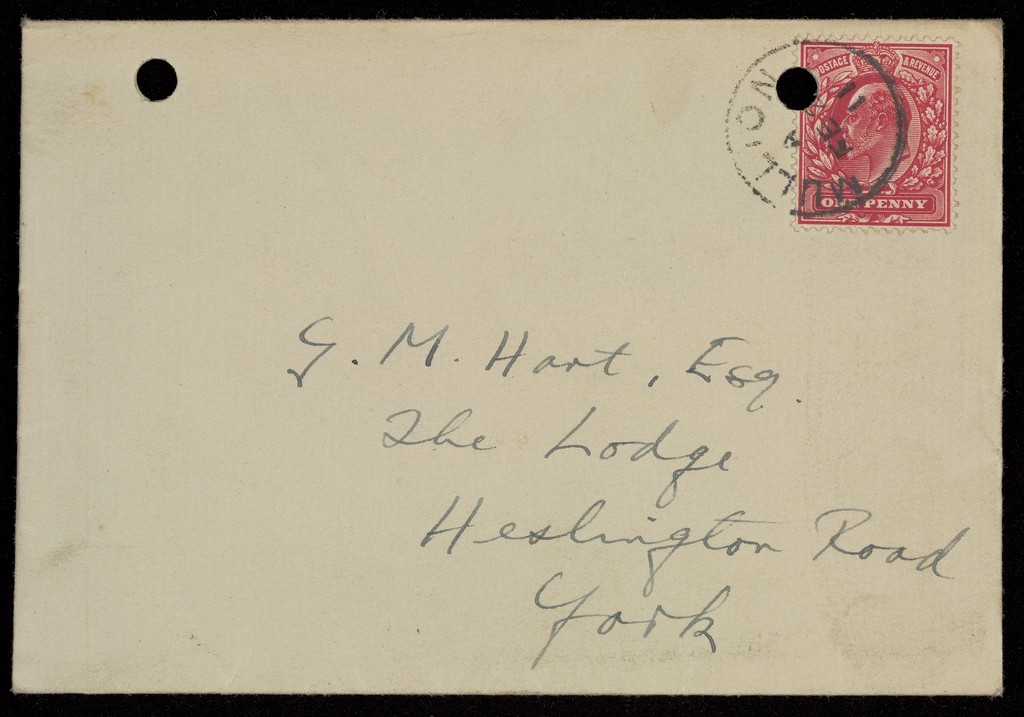 POSTAGE & REVENUE
ONE PENNY
MULLION
A
11
FE
G. M. Hart, Esq.
The Lodge
Heslington Road
York